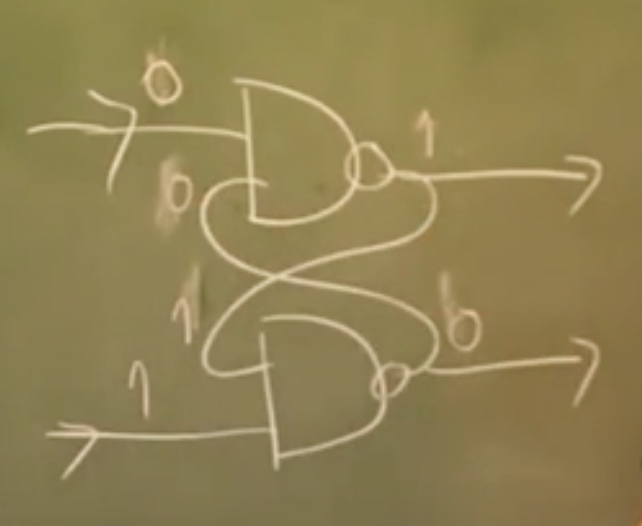 0
1
0
1
0
1